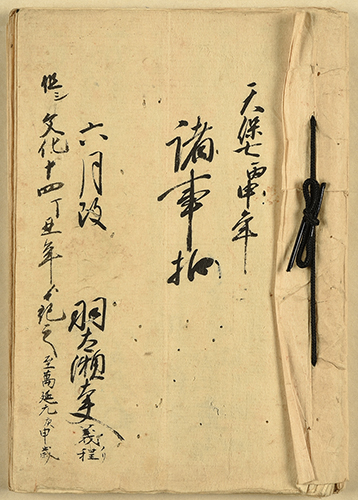 天保七丙申年
諸事扣
六月改
羽太瀬 義程
但シ文化十四丁丑年ゟ記之 至萬延元庚申歳